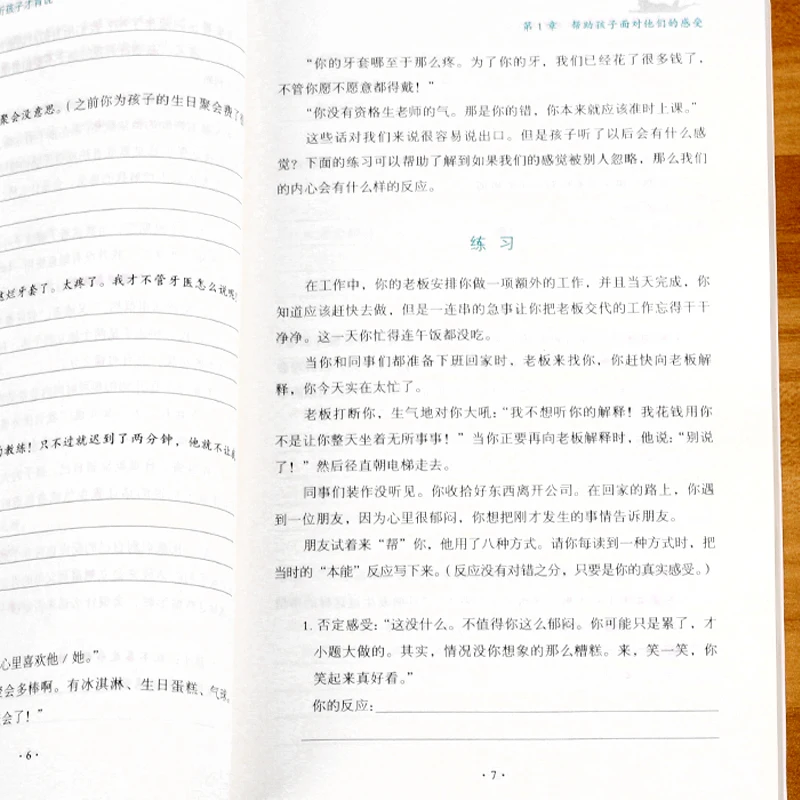 孩子才肯说
聚会没意思。(之前你为孩子的生日聚会费了
烂牙套了。太疼了。我才不管牙医怎么说呢!
教练!只不过就迟到了两分钟,他就不让
心里喜欢他/她。”
会多棒啊。有冰淇淋、生日蛋糕、气球,
会了!”
·6·
第1章 帮助孩子面对他们的感受
“你的牙套哪至于那么疼。为了你的牙,我们已经花了很多钱了,
不管你愿不愿意都得戴!”
“你没有资格生老师的气。那是你的错,你本来就应该准时上课。”
这些话对我们来说很容易说出口。但是孩子听了以后会有什么感
觉?下面的练习可以帮助了解到如果我们的感觉被别人忽略,那么我们
的内心会有什么样的反应。
练习
在工作中,你的老板安排你做一项额外的工作,并且当天完成,你
知道应该赶快去做,但是一连串的急事让你把老板交代的工作忘得干干
净净。这一天你忙得连午饭都没吃。
当你和同事们都准备下班回家时,老板来找你,你赶快向老板解
释,你今天实在太忙了。
老板打断你,生气地对你大吼:“我不想听你的解释!我花钱用你
不是让你整天坐着无所事事!”当你正要再向老板解释时,他说:“别说
了!”然后径直朝电梯走去。
同事们装作没听见。你收拾好东西离开公司。在回家的路上,你遇
到一位朋友,因为心里很郁闷,你想把刚才发生的事情告诉朋友。
朋友试着来“帮”你,他用了八种方式。请你每读到一种方式时,把
当时的“本能”反应写下来。(反应没有对错之分,只要是你的真实感受。)
1. 否定感受:“这没什么。不值得你这么郁闷。你可能只是累了,才
小题大做的。其实,情况没你想象的那么糟糕。来,笑一笑,你
笑起来真好看。”
你的反应:
·7·